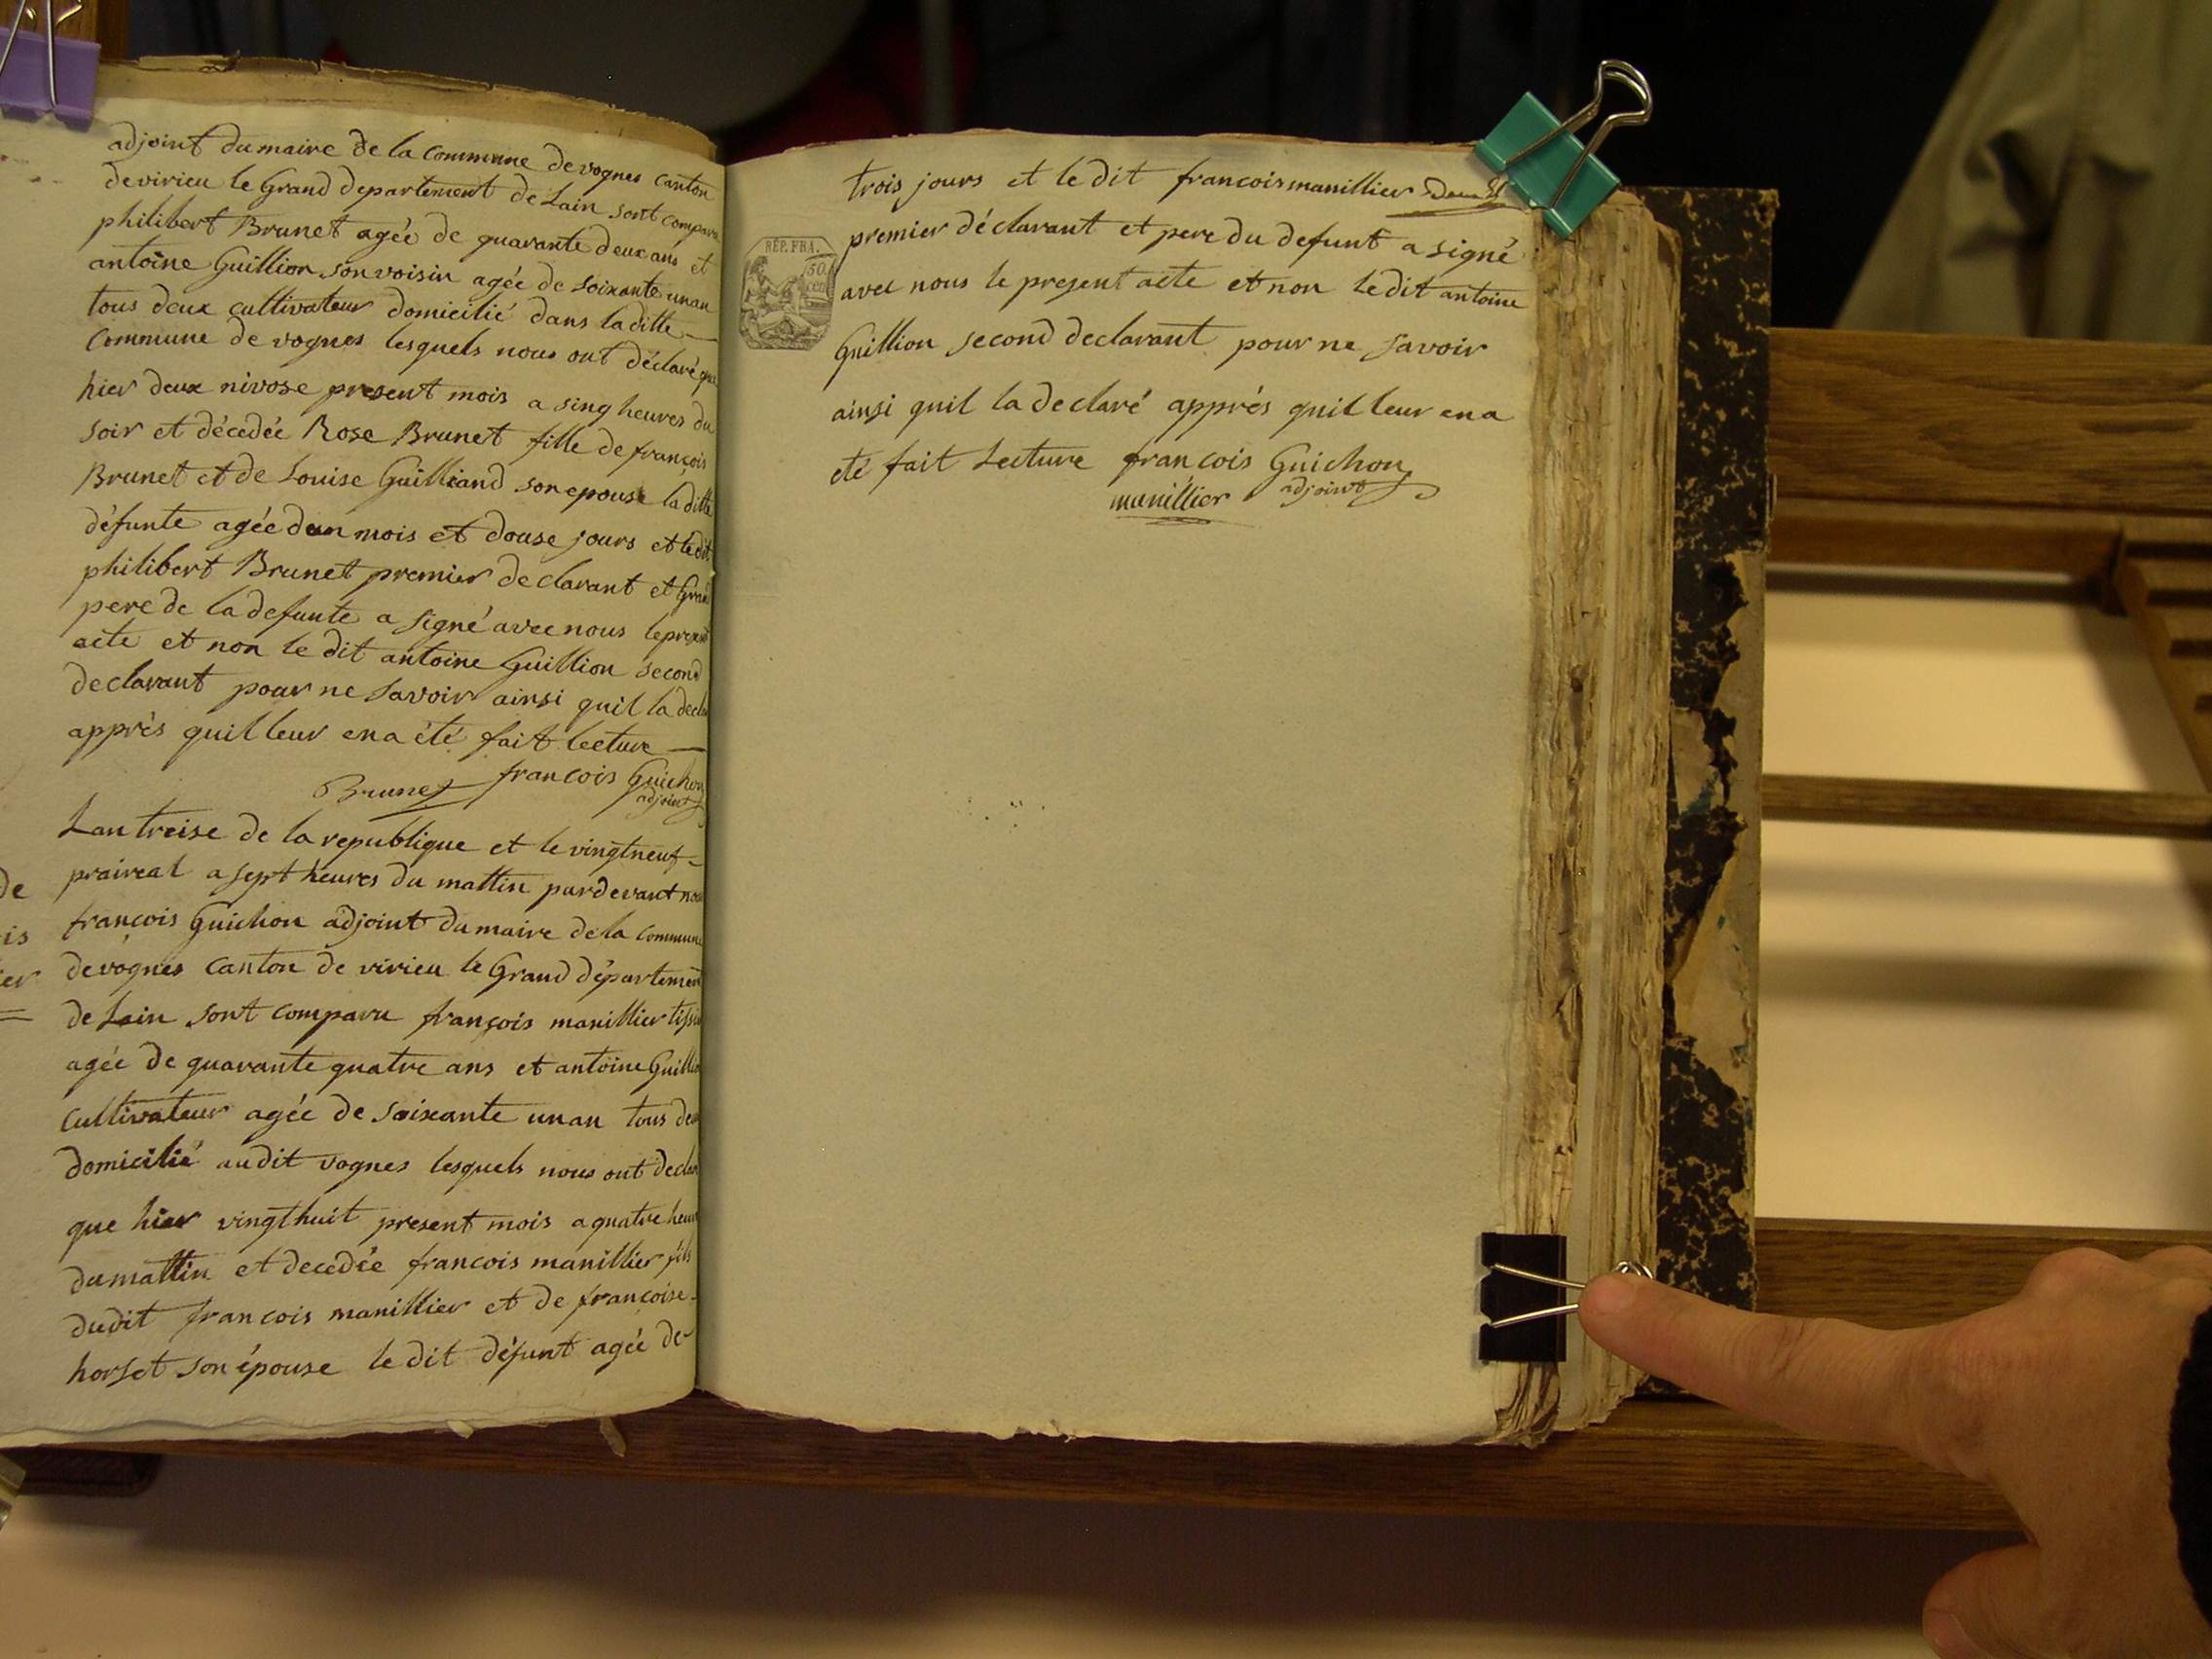 adjoint du maire de la commune de vognes canton
de virieu le Grand departement de Lain sont compara
philibert Brunet agée de quarante deux ans et
antoine Guillion son voisin agée de soixante unan
tous deux cultivateur domicilié dans la ditte
commune de vognes lesquels nous ont déclaré que
hier deux nivose present mois a sing heures du
soir et décedée Rose Brunet fille de françois
Brunet et de Louise Guilliand son epouse la ditte
défunte agée dun mois et douse jours et le dit
philibert Brunet premier declarant et Gran
pere de la defunte a signé avec nous le present
acte et non le dit antoine Guillion second
declarant pour ne savoir ainsi quil la decla
apprès quil leur ena été fait lecture
Brunet françois Guichon
adjoint
Lan treise de la republique et le vingtneuf
praireal a sept heures du mattin pardevant nous
françois Guichon adjoint du maire de la commune
de vognes canton de virieu le Grand département
de Lain sont comparu françois manillier tissie
agée de quarante quatre ans et antoine Guillio
cultivateur agée de soixante unan tous deu
domicilié audit vognes lesquels nous ont declar
que hier vingthuit present mois a quatre heur
du mattin et decedée francois manillier fils
dudit francois manillier et de françoise
horset son épouse le dit défunt agée de
de
is
er
trois jours et le dit francois manillier
premier déclarant et pere du defunt a signé
avec nous le present acte et non le dit antoine
Guillion second declarant pour ne savoir
ainsi quil la declaré apprés quil leur ena
eté fait Lecture françois Guichon
manillier adjoint
RÉP. FRA.
50
cen